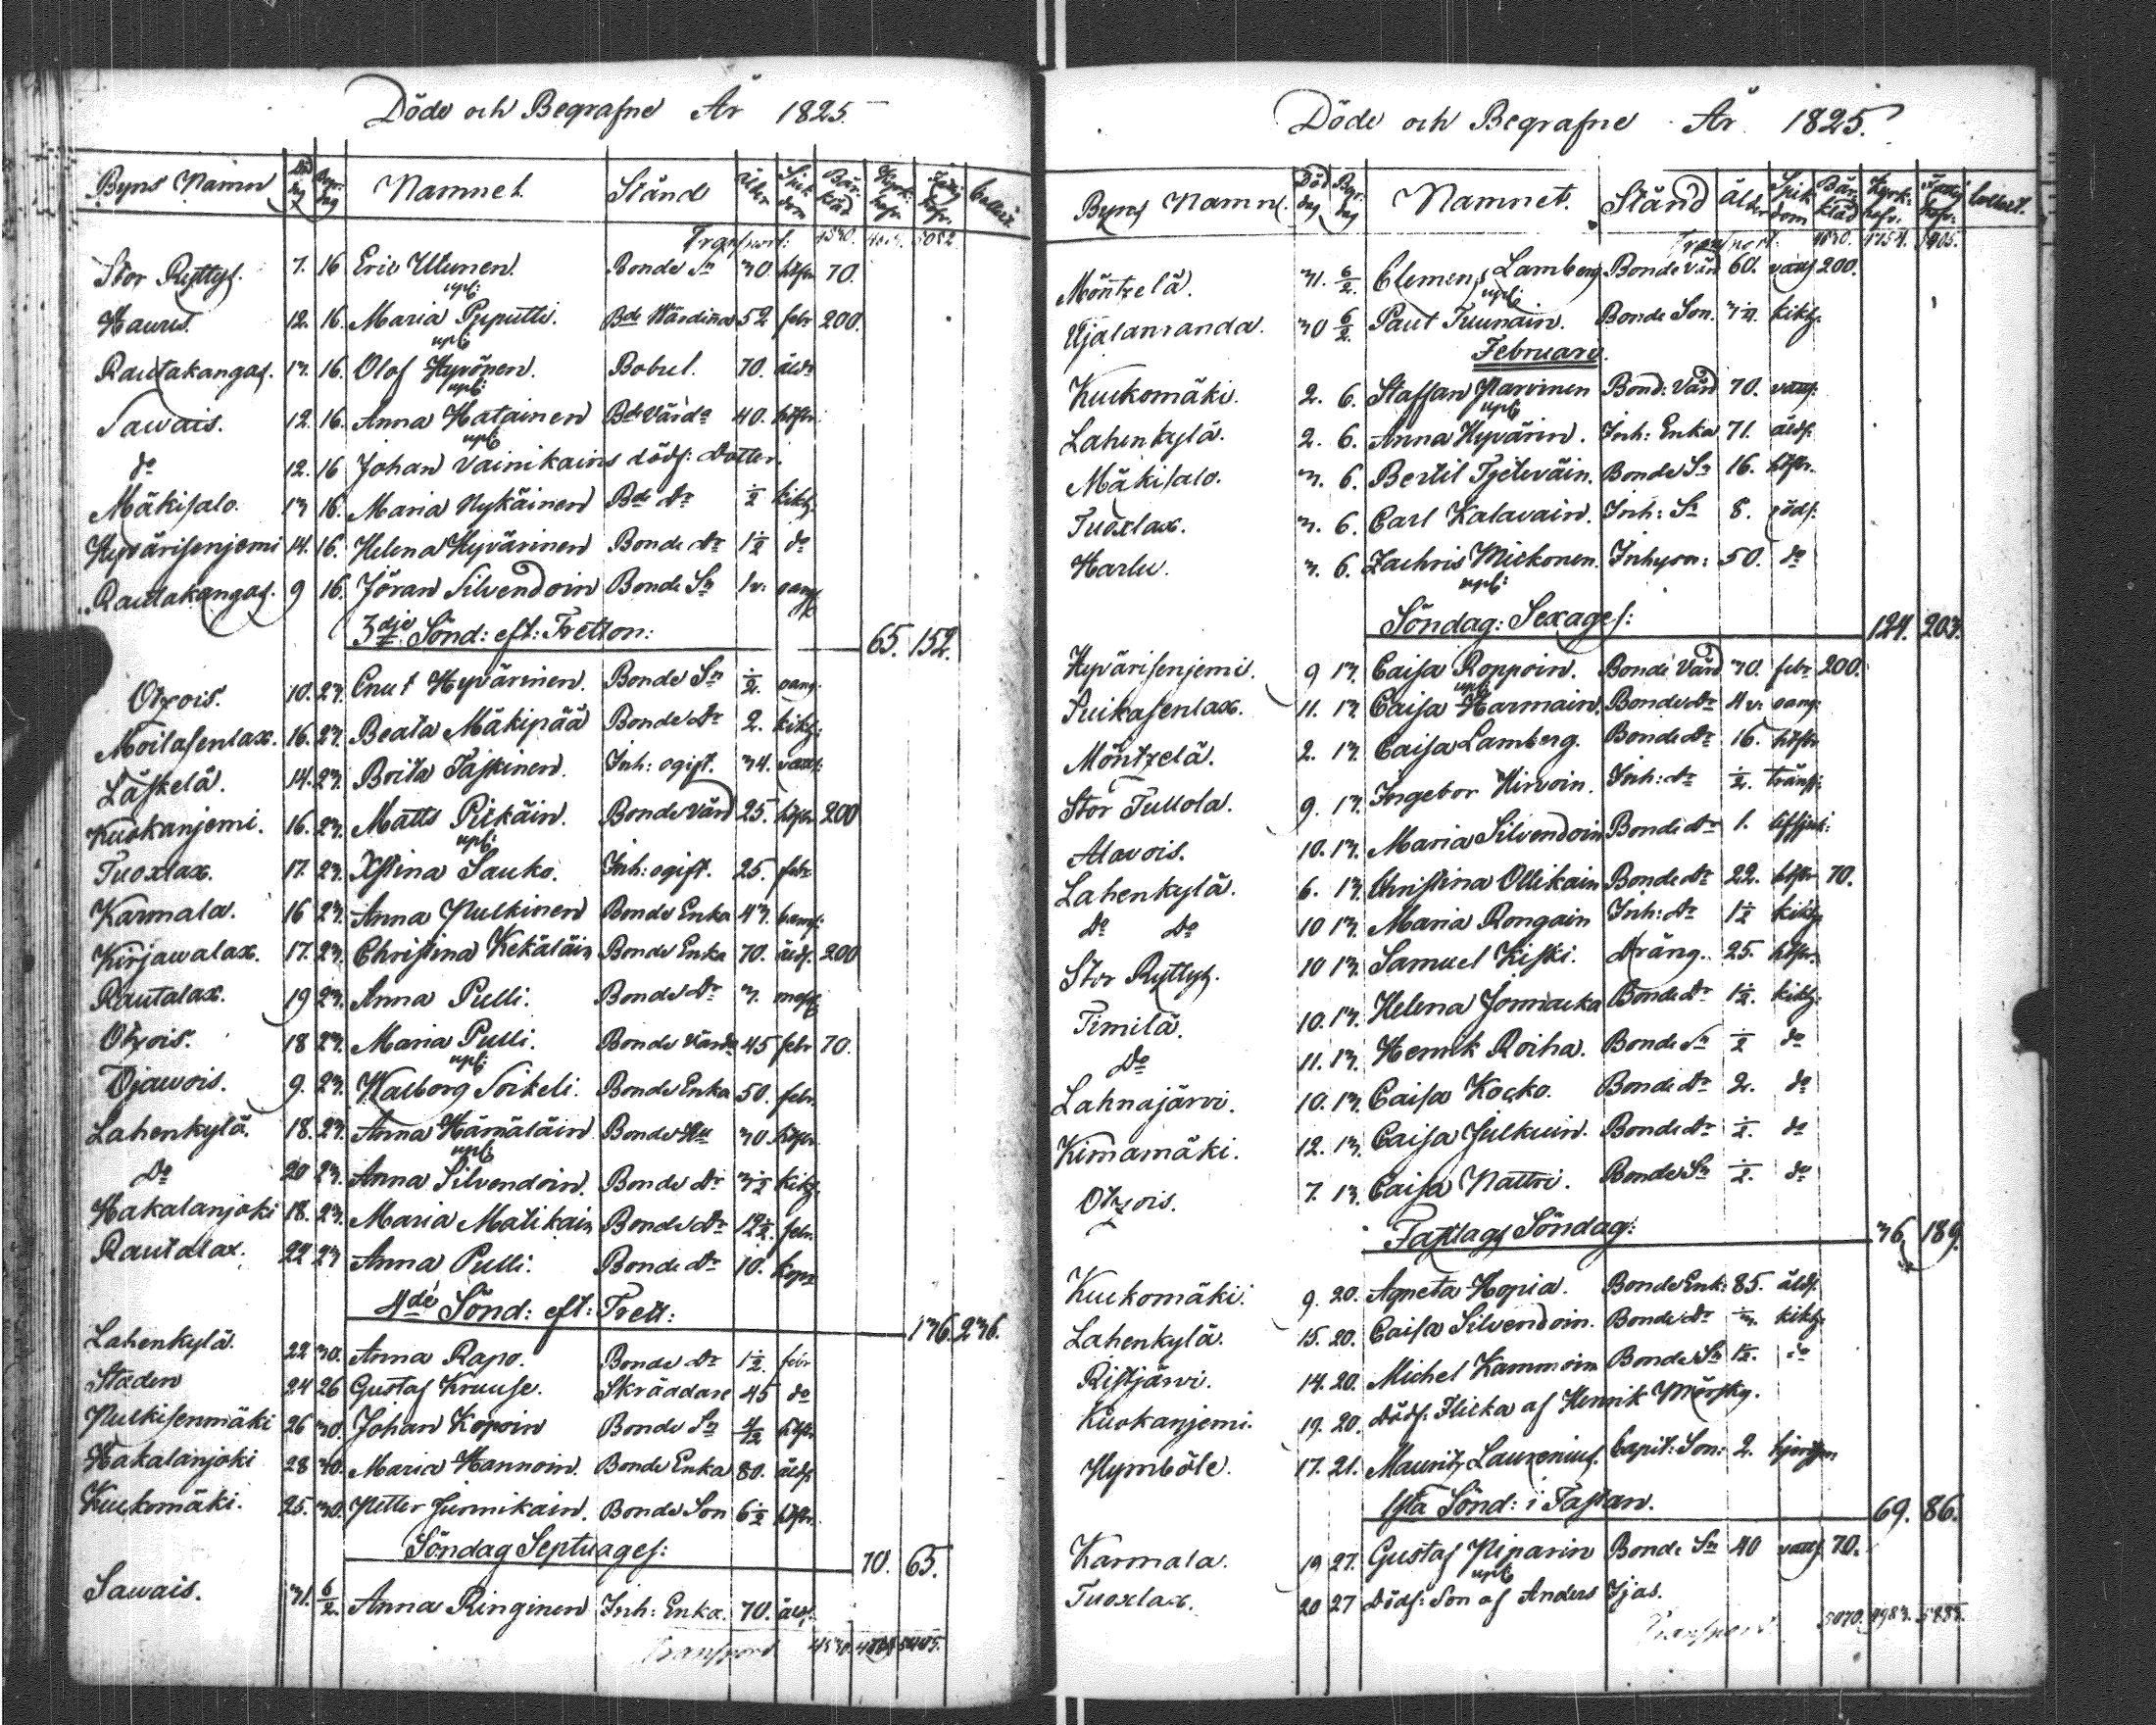 Döde och Begrafne År 1825.
Byns Namn Död dag Begr. dag Namnet Stånd Ålder Sjuk dom Bår kläd Kyrk: Collect.
Transport: 4530. 5082.
Stor Ryttys. 7. 16 Eric Ulunen. Bonde Sn 30. hitsn 70.
upb:
Haurus. 12. 16. Maria Pyputti. Bde Wärdina 52 febr 200.
upb:
Rautakangas. 13. 16. Olof Hyvönen. Bobul. 70. åld:
upb:
Sawais. 12. 16. Anna Hatainen Bde Värda 40. hitsn
upb:
do 12. 16 Johan Vainikains dödf: Dotter.
Mäkisalo. 13 16. Maria Nykäinen Bde Dr 1/2 kikh:
Hyvärisenjemi 14. 16. Helena Hyvärinen Bonde Dr 1 1/2 do
Rautakangas. 9 16. Jöran Silvendoin Bonde Sn 1v. oang:
3dje Sönd: eft: Tretton: 65. 152.
Otxois. 10. 23. Cnut Hyvärinen. Bonde Sn 1/2. oang.
Moilasenlax. 16. 23. Beata Mäkipää Bonde Dr 2. kikh:
Läskelä. 14. 23. Brita Taskinen. Inh: ogift. 34. vatts:
Kuokanjemi. 16. 23. Matts Pitkäin. Bonde Värd 25. hitsn 200
upb:
Tuoxlax. 17. 23. Xstina Sauko. Inh: ogift. 25. febr
Karmala. 16 23. Anna Pulkinen Bonde Enka 43. barns:
Kirjawalax. 17. 23. Christina Kekäläin Bonde Enka 70. åld. 200
Rautalax. 19 23. Anna Pulli. Bonde Dr 3. mess:
Otxois. 18 23. Maria Pulli. Bonde Värda 45 febr 70.
upb:
Ojawois. 9. 23. Walborg Soikeli. Bonde Enka 50. febr.
Lahenkylä. 18. 23. Anna Hämäläin Bonde Hu 30. hitsn
upb:
Do 20 23. Anna Silvendoin. Bonde Dr 3 1/2 kikh:
Hakalanjoki 18. 23. Maria Matikain Bonde Dr 12 1/2. febr.
Rautalax. 22 23 Anna Pulli. Bonde Dr 10. kopp
4de Sönd: eft: Trett: 136. 236.
Lahenkylä. 22 30. Anna Rapo. Bonde Dr 1 1/2. febr
Staden 24 26 Gustaf Kruuse. Skräddare 45 do
Pulkisenmäki 26 30. Johan Kopoin Bonde Sn 4/12 hitsn
Hakalanjoki 28 30. Maria Hannoin. Bonde Enka 80. åld:
Kuckomäki. 25. 30. Petter Junnikain. Bonde Son 6 1/2 hitsn.
Söndag Septuages: 70. 65.
Sawais. 31. 6/2 Anna Ringinen Inh: Enka. 70. åld:
Transport 4530.
Döde och Begrafne År 1825.
Byns Namn. Död dag Begr. dag Namnet. Stånd Ålder Sjuk dom Bår kläd Kyrk: Collect.
Transport: 4530.
Möntzelä. 31. 6/2. Clemens Lamberg Bonde Värd 60. vatts 200.
upb:
Ujalanranda. 30 6/2. Paul Tuunain. Bonde Son. 3/4. kikh:
Februari.
Kuckomäki. 2. 6. Staffan Parvinen Bond: Värd 70. vatts:
upb:
Lahenkylä. 2. 6. Anna Hyvärin. Inh: Enka 71. åld:
Mäkisalo. 3. 6. Bertil Tyeleväin. Bonde Sn 16. hitsn.
Tuoxlax. 3. 6. Carl Kalavain. Inh: Sn 8. rödf:
Harlu. 3. 6. Zachris Mickonen. Inhysn: 50. do
upb:
Söndag: Sexages: 124. 203.
Hyvärisenjemi. 9 13. Caisa Roppoin. Bonde Värd 30. febr. 200.
upb:
Suikasenlax. 11. 13. Caisa Harmain. Bonde Dr 4v. oang:
Möntzelä. 2. 13. Caisa Lamberg. Bonde Dr 16. hitsn
Stor Tullola. 9. 13. Ingebor Hirvoin. Inh: Dr 1/2. tränsj:
Alavois. 10. 13. Maria Silvendoin Bonde Dr 1.
Lahenkylä. 6. 13. Christina Ollikain Bonde Dr 22. hitsn 70.
Do Do 10 13. Maria Rongain Inh: Dr 1 1/2 kikh:
Stor Ryttys. 10 13. Samuel Kiski. dräng. 25. hitsn
Timilä. 10. 13. Helena Jormacka Bonde Dr 1 1/2. kikh:
Do 11. 13. Henrik Roiha. Bonde Sn 1/2 do
Lahnajärvi. 10. 13. Caisa Kocko. Bonde Dr 2. do
Kimamäki. 12. 13. Caisa Julkuin. Bonde Dr 1/2. do
Otxois. 7. 13. Caisa Nattri. Bonde Sn 1/2. do
Fastlags Söndag: 36. 189.
Kuckomäki. 9. 20. Agneta Hopia. Bonde Enk: 85. åld:
Lahenkylä. 15. 20. Caisa Silvendoin. Bonde Dr kikh:
Ristjärvi. 14. 20. Michel Kammoin Bonde Sn 1 1/2. do
Kuokanjemi. 19. 20. Dödf: Flicka af Henrik Mörsky.
Hymböle. 17. 21. Mauritz Laurenius. Capit: Son: 2.
1sta Sönd: i Fastan. 69. 86.
Karmala. 19 27. Gustaf Piparin Bonde Sn 40 vatts 70.
upb:
Tuoxlax. 20 27 Dödf: Son af Anders Ijas.
Transport 5070.